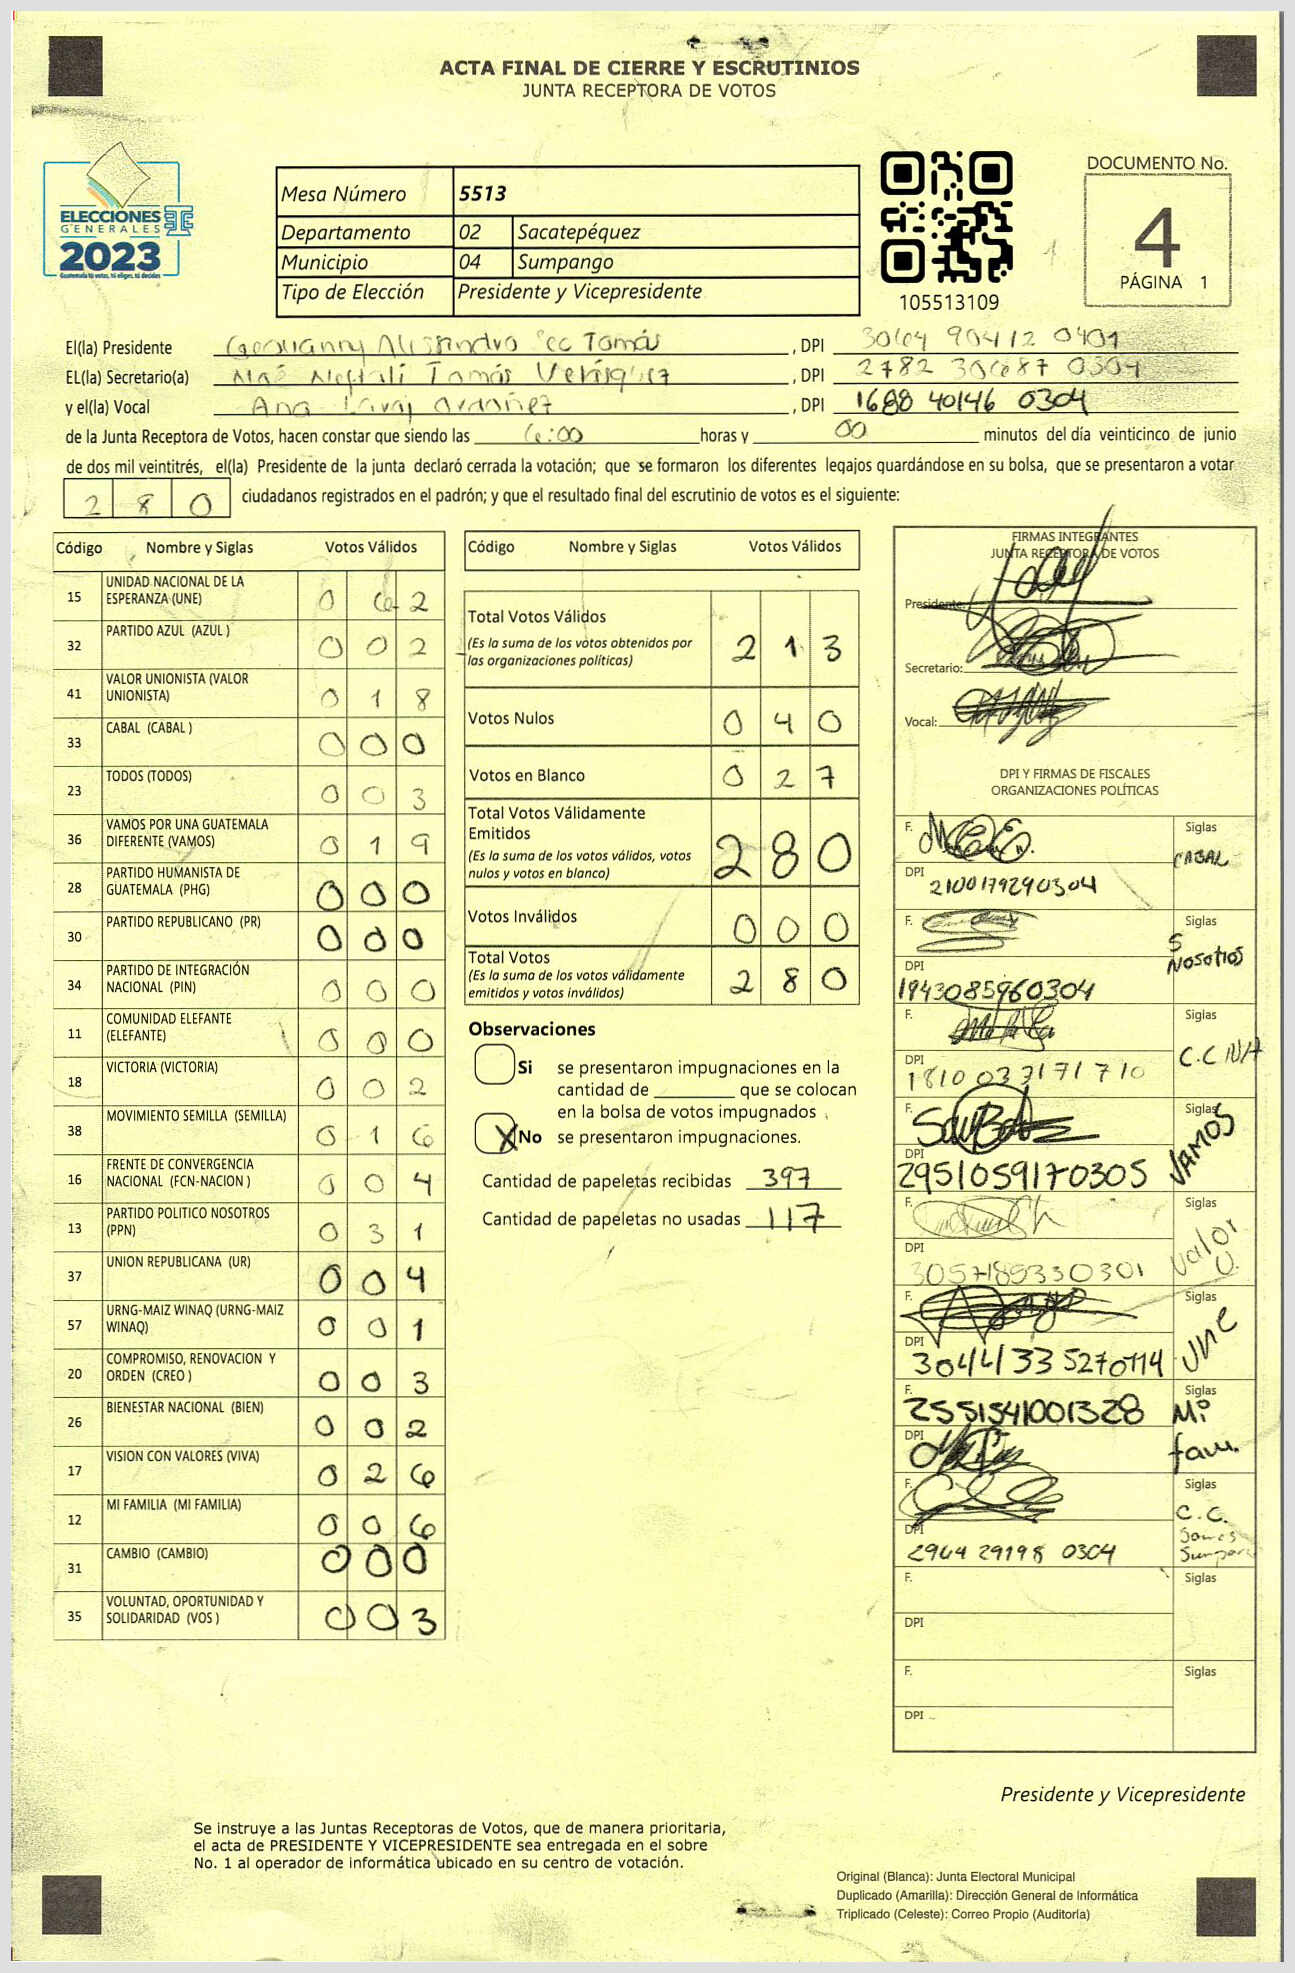 ACTA FINAL DE CIERRE Y ESCRUTINIOS
JUNTA RECEPTORA DE VOTOS
ELECCIONES
GENERALES
2023
Mesa Número 5513
Departamento 02 Sacatepéquez
Municipio 04 Sumpango
Tipo de Elección Presidente y Vicepresidente
105513109
DOCUMENTO No.
4
PÁGINA 1
El(la) Presidente Tomás , DPI 3064 90412 0401
EL(la) Secretario(a) Tomás , DPI 2782 30687 0304
y el(la) Vocal Ana , DPI 1688 40146 0304
de la Junta Receptora de Votos, hacen constar que siendo las 6:00 horas y 00 minutos del día veinticinco de junio
de dos mil veintitrés, el(la) Presidente de la junta declaró cerrada la votación; que se formaron los diferentes legajos quardándose en su bolsa, que se presentaron a votar
280 ciudadanos registrados en el padrón; y que el resultado final del escrutinio de votos es el siguiente:
Código Nombre y Siglas Votos Válidos
15 UNIDAD NACIONAL DE LA ESPERANZA (UNE) 062
32 PARTIDO AZUL (AZUL ) 002
41 VALOR UNIONISTA (VALOR UNIONISTA) 018
33 CABAL (CABAL ) 000
23 TODOS (TODOS) 003
36 VAMOS POR UNA GUATEMALA DIFERENTE (VAMOS) 019
28 PARTIDO HUMANISTA DE GUATEMALA (PHG) 000
30 PARTIDO REPUBLICANO (PR) 000
34 PARTIDO DE INTEGRACIÓN NACIONAL (PIN) 000
11 COMUNIDAD ELEFANTE (ELEFANTE) 000
18 VICTORIA (VICTORIA) 002
38 MOVIMIENTO SEMILLA (SEMILLA) 016
16 FRENTE DE CONVERGENCIA NACIONAL (FCN-NACION ) 004
13 PARTIDO POLITICO NOSOTROS (PPN) 031
37 UNION REPUBLICANA (UR) 004
57 URNG-MAIZ WINAQ (URNG-MAIZ WINAQ) 001
20 COMPROMISO, RENOVACION Y ORDEN (CREO ) 003
26 BIENESTAR NACIONAL (BIEN) 002
17 VISION CON VALORES (VIVA) 026
12 MI FAMILIA (MI FAMILIA) 006
31 CAMBIO (CAMBIO) 000
35 VOLUNTAD, OPORTUNIDAD Y SOLIDARIDAD (VOS ) 003
Código Nombre y Siglas Votos Válidos
Total Votos Válidos 213
(Es la suma de los votos obtenidos por
las organizaciones políticas)
Votos Nulos 040
Votos en Blanco 027
Total Votos Válidamente
Emitidos 280
(Es la suma de los votos válidos, votos
nulos y votos en blanco)
Votos Inválidos 000
Total Votos 280
(Es la suma de los votos válidamente
emitidos y votos inválidos)
Observaciones
Si se presentaron impugnaciones en la
cantidad de ________ que se colocan
en la bolsa de votos impugnados
X No se presentaron impugnaciones.
Cantidad de papeletas recibidas 397
Cantidad de papeletas no usadas 117
FIRMAS INTEGRANTES
JUNTA RECEPTORA DE VOTOS
Presidente:
Secretario:
Vocal:
DPI Y FIRMAS DE FISCALES
ORGANIZACIONES POLÍTICAS
F. Siglas CABAL
DPI 2100179290304
F. Siglas
Nosotros
DPI 1943085960304
F. Siglas C.C
DPI
F. Siglas VAMOS
DPI 2951059170305
F. Siglas Valor U.
DPI 3057189330301
F. Siglas UNE
DPI
F. 2551541001328 Siglas Mi fam.
DPI
F. Siglas C.C.
DPI 2964 29198 0304
F. Siglas
DPI
F. Siglas
DPI
Presidente y Vicepresidente
Se instruye a las Juntas Receptoras de Votos, que de manera prioritaria,
el acta de PRESIDENTE Y VICEPRESIDENTE sea entregada en el sobre
No. 1 al operador de informática ubicado en su centro de votación.
Original (Blanca): Junta Electoral Municipal
Duplicado (Amarilla): Dirección General de Informática
Triplicado (Celeste): Correo Propio (Auditoría)